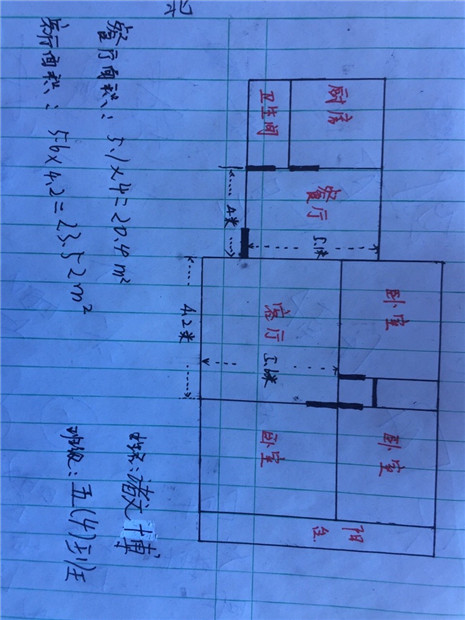 厨房
卧室
卧室
卫生间
餐厅
5.1米
4米
客厅
5.6米
4.2米
卧室
阳台
餐厅面积：5.1×4=20.4m²
客厅面积：5.6×4.2=23.52m²
姓名：
班级：五(4)班